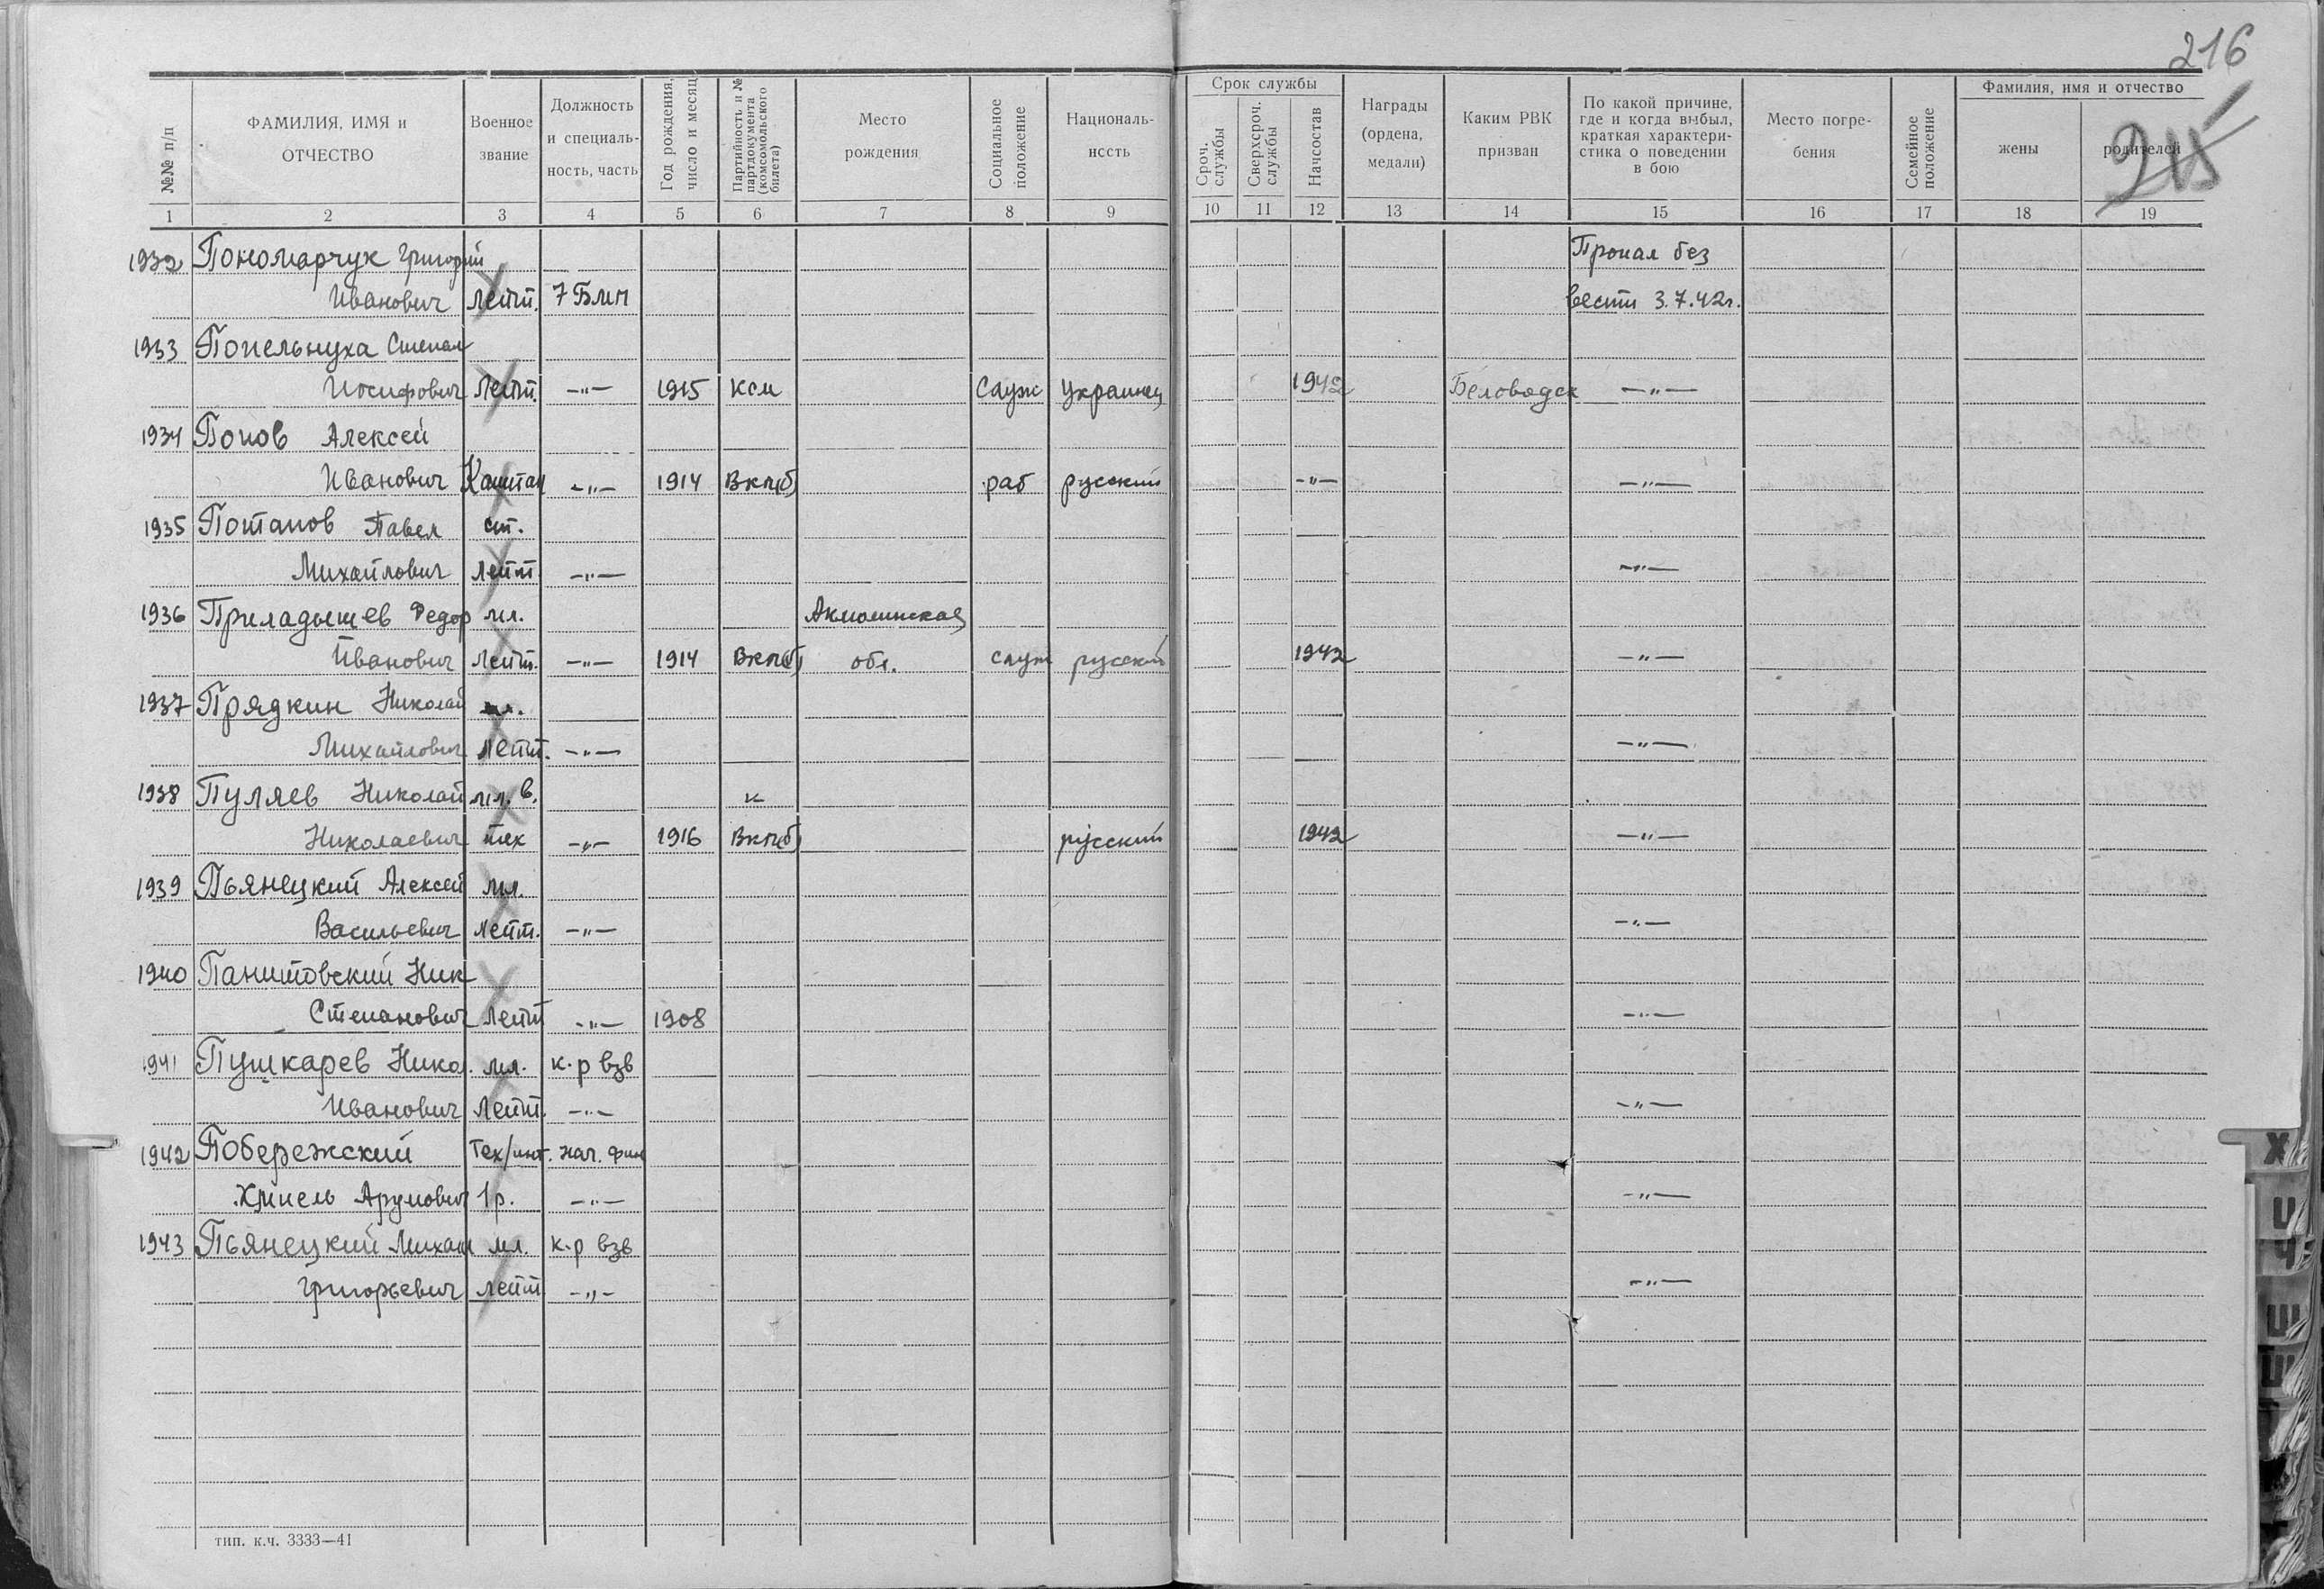 216
215
№№ п/п
ФАМИЛИЯ, ИМЯ и ОТЧЕСТВО
Военное звание
Должность и специальность, часть
Год рождения, число и месяц
Партийность и № партдокумента (комсомольского билета)
Место рождения
Социальное положение
Националь-нссть
Срок службы
Сроч. службы
Сверхсроч. службы
Начсостав
Награды (ордена, медали)
Каким РВК призван
По какой причине, где и когда выбыл, краткая характери-стика о поведении в бою
Место погре-бения
Семейное положение
Фамилия, имя и отчество
жены
родителей
1 2 3 4 5 6 7 8 9 10 11 12 13 14 15 16 17 18 19
1932 Пономарчук Григорий Пропал без
Иванович лейт. 7 Бмп вести 3.7.42г.
1933 Попельнуха Степан
Иосифович лейт. —"— 1915 ксм служ украинец 1942 Беловодск —"—
1934 Попов Алексей
Иванович Капитан —"— 1914 Вкп(б) раб русский —"— —"—
1935 Потапов Павел ст.
Михайлович лейт —"— —"—
1936 Приладышев Федор мл. Акмолинская
Иванович лейт. —"— 1914 Вкп(б) обл. служ русский 1942 —"—
1937 Прядкин Николай мл.
Михайлович лейт. —"— —"—
1938 Пуляев Николай мл. в. к
Николаевич тех —"— 1916 Вкп(б) русский 1942 —"—
1939 Пьянецкий Алексей мл.
Васильевич лейт. —"— —"—
1940 Панитовский Ник
Степанович лейт —"— 1908 —"—
1941 Пушкарев Никол. мл. к-р взв
Иванович лейт. —"— —"—
1942 Побережский Тех/инт. нач. фин
Арумович 1р. —"— —"—
1943 Пьянецкий Михаил мл. к-р взв
Григорьевич лейт —"— —"—
тип. к.ч. 3333—41
Х
Ц
Ч
Ш
Щ